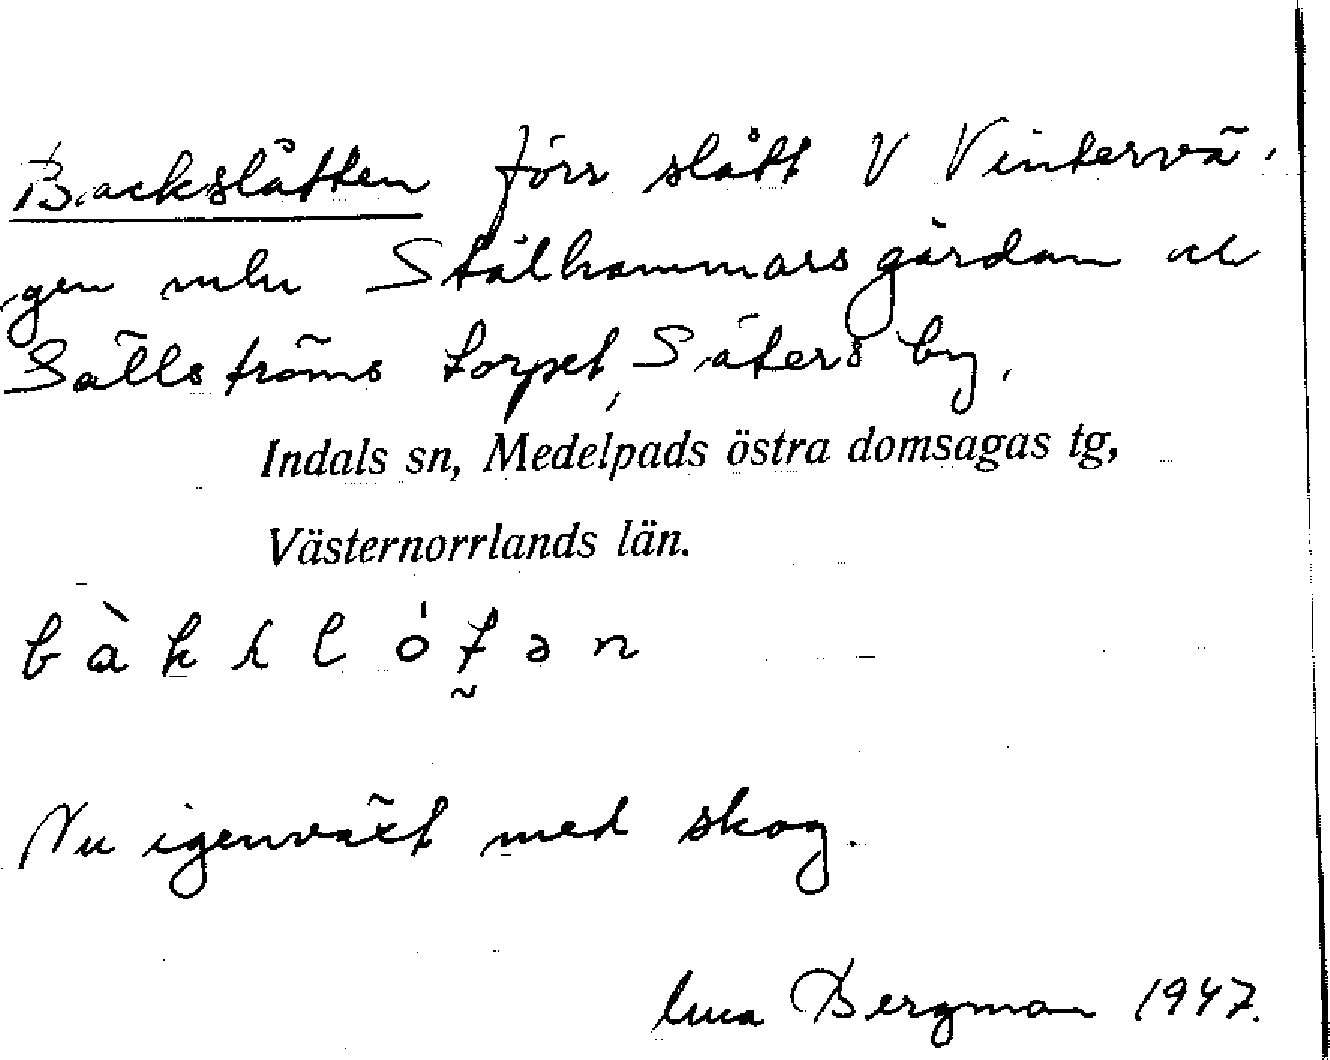 Backslåtten förr slått V Vintervä-
gen mln Stålhammarsgården och
Sällströms torpet, Säters by.
Indals sn, Medelpads östra domsagas tg,
Västernorrlands län.
bàkslótən
Nu igenväxt med skog.
Bergman 1947.